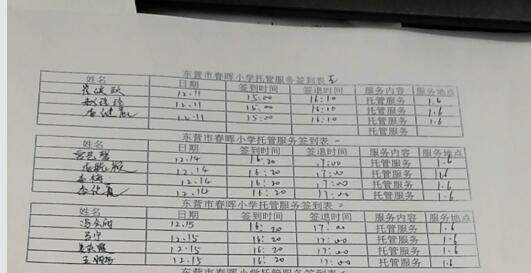 东营市春晖小学托管服务签到表 五
姓名 日期 签到时间 签退时间 服务内容 服务地点
12.11 15:00 16:10 托管服务 1.6
12.11 15:00 16:10 托管服务 1.6
12.11 15:00 16:10 托管服务 1.6
东营市春晖小学托管服务签到表 一
姓名 日期 签到时间 签退时间 服务内容 服务地点
12.14 16:20 17:00 托管服务 1.6
12.14 16:20 17:00 托管服务 1.6
12.14 16:20 17:00 托管服务 1.6
12.14 16:20 17:00 托管服务 1.6
东营市春晖小学托管服务签到表 二
姓名 日期 签到时间 签退时间 服务内容 服务地点
12.15 16:20 17:00 托管服务 1.6
12.15 16:20 17:00 托管服务 1.6
12.15 16:20 17:00 托管服务 1.6
12.15 16:20 17:00 托管服务 1.6
东营市春晖小学托管服务签到表